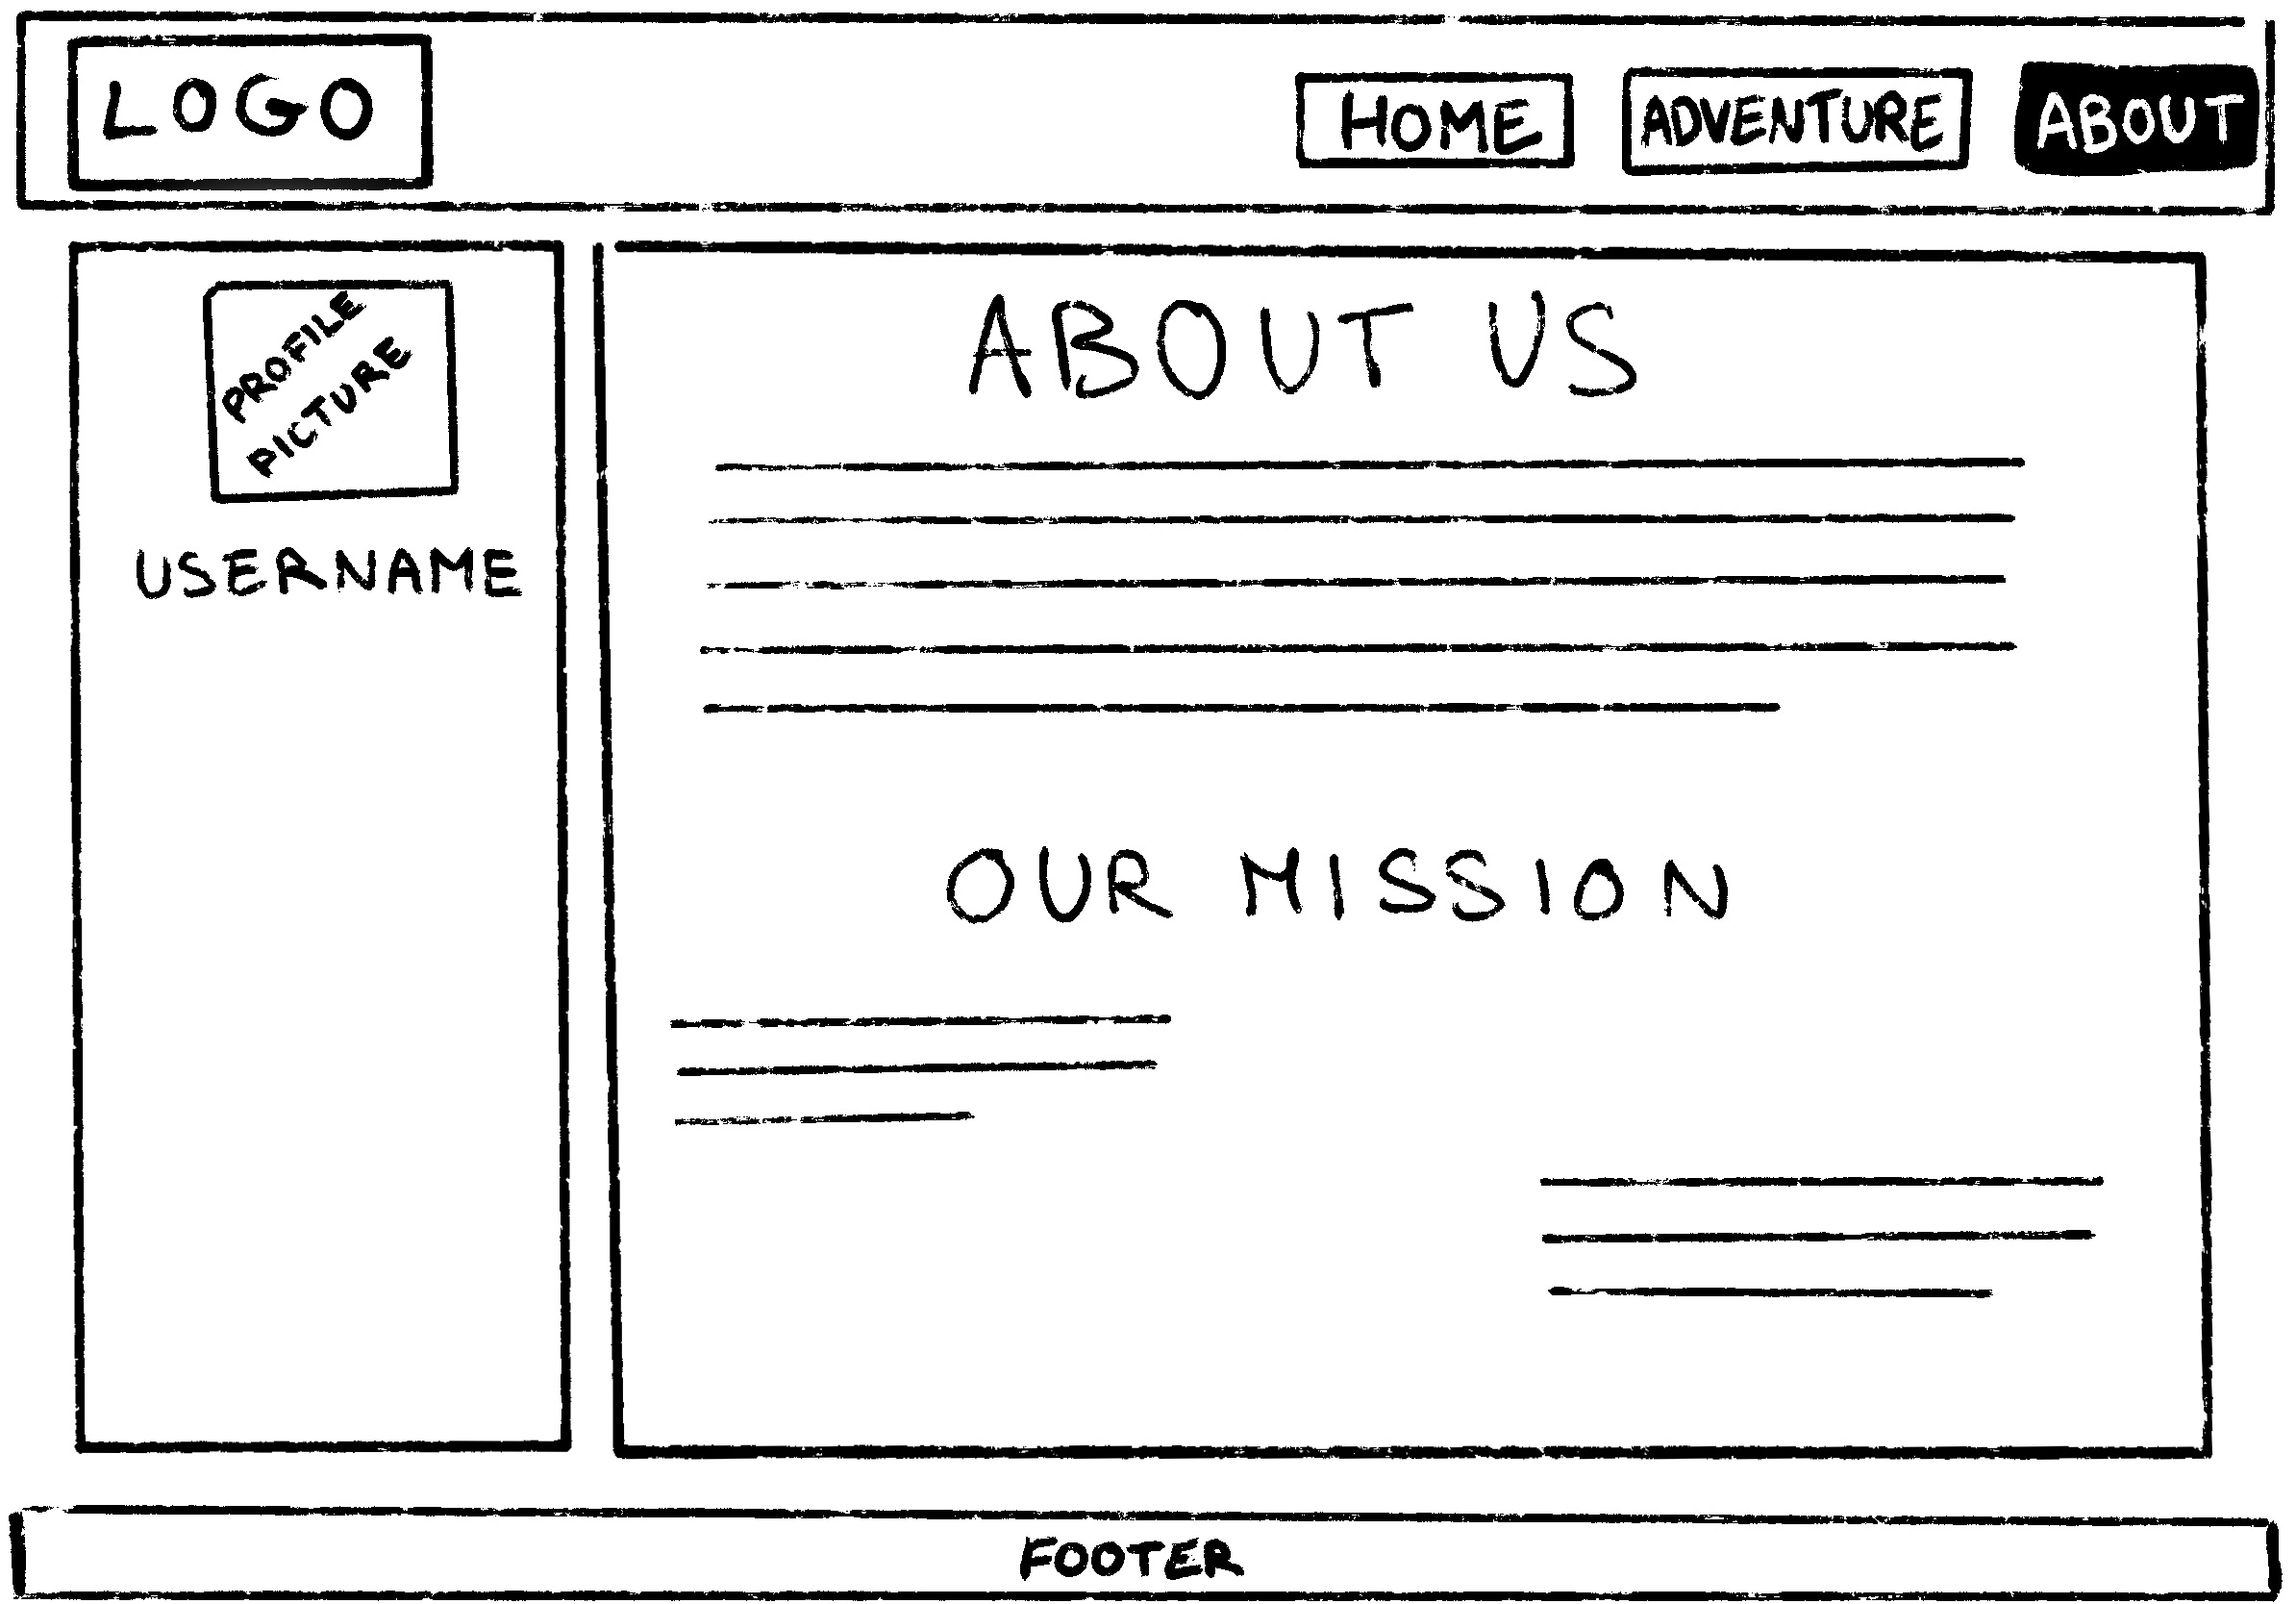 LOGO
HOME
ADVENTURE
ABOUT
PROFILE
PICTURE
USERNAME
ABOUT US
OUR MISSION
FOOTER